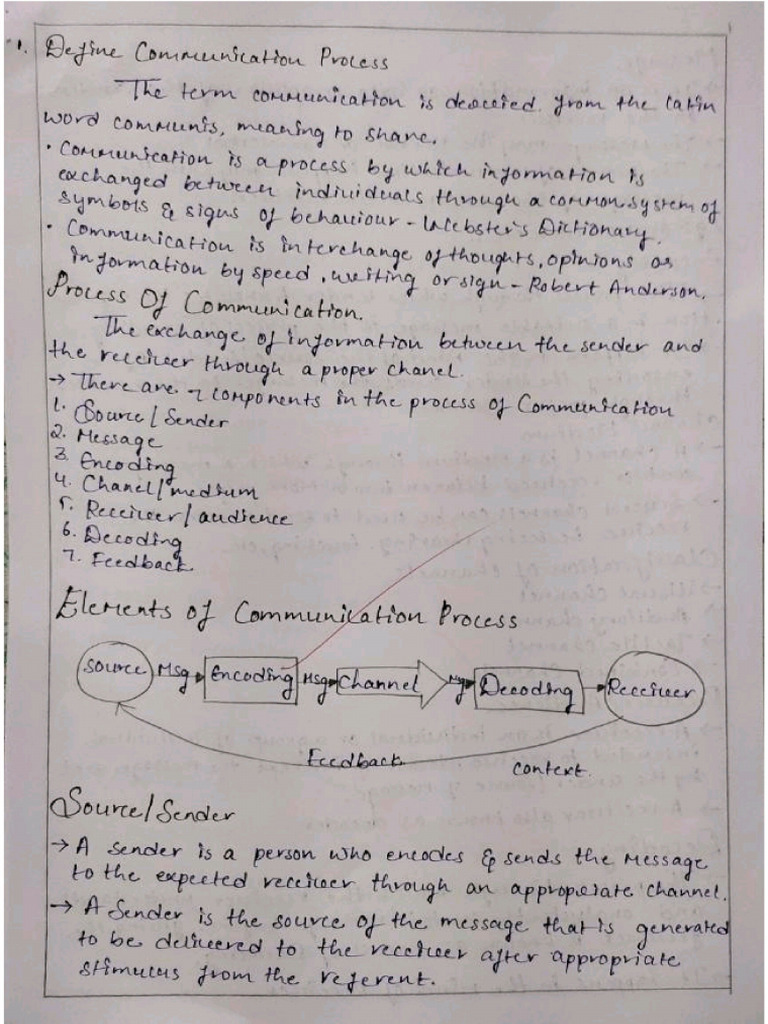 1. Define Communication Process
The term communication is deocried from the latin
word communis, meaning to share.
• Communication is a process by which information is
exchanged between individuals through a common system of
symbols & signs of behaviour - Webster's Dictionary.
• Communication is interchange of thoughts, opinions or
information by speed, writing or sign - Robert Anderson.
Process Of Communication.
The exchange of information between the sender and
the receiver through a proper chanel.
→ There are 7 components in the process of Communication
1. Source / Sender
2. Message
3. Encoding
4. Chanel / medium
5. Receiver / audience
6. Decoding
7. Feedback
Elements of Communication Process
Source Msg Encoding Msg Channel Msg Decoding Receiver
Feedback
context.
Source / Sender
→ A sender is a person who encodes & sends the message
to the expected receiver through an appropriate channel.
→ A Sender is the source of the message that is generated
to be delivered to the receiver after appropriate
stimulus from the referent.